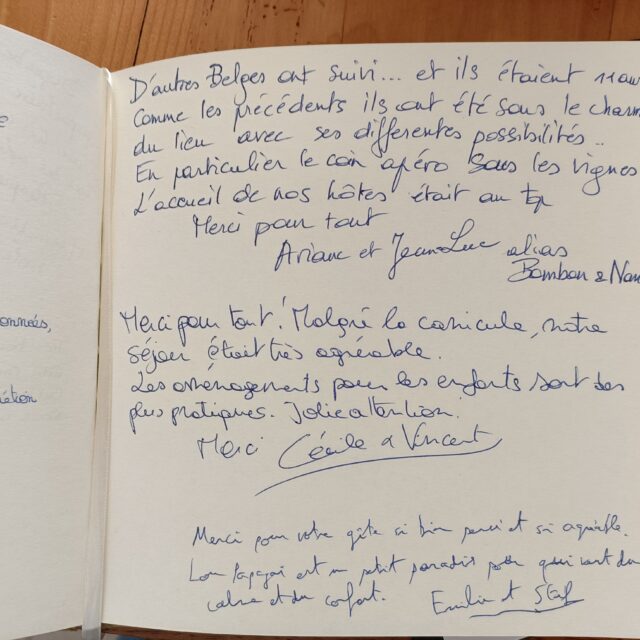 e
onnées,
étion
D'autres Belges ont suivi... et ils étaient 11 au
Comme les précédents ils ont été sous le charm
du lieu avec ses differentes possibilités..
En particulier le coin apéro sous les vignes
L'accueil de nos hôtes était au top
Merci pour tout
Ariane et Jean-Luc alias
Bombon & Nan
Merci pour tout! Malgré la canicule, notre
séjour était très agréable.
Les aménagements pour les enfants sont des
plus pratiques. Jolie attention!
Merci Cécile & Vincent
Merci pour votre gîte si bien pensé et si agréable.
Lou Papagaï est un petit paradis pour qui veut du
calme et du confort. Emilie et Stef